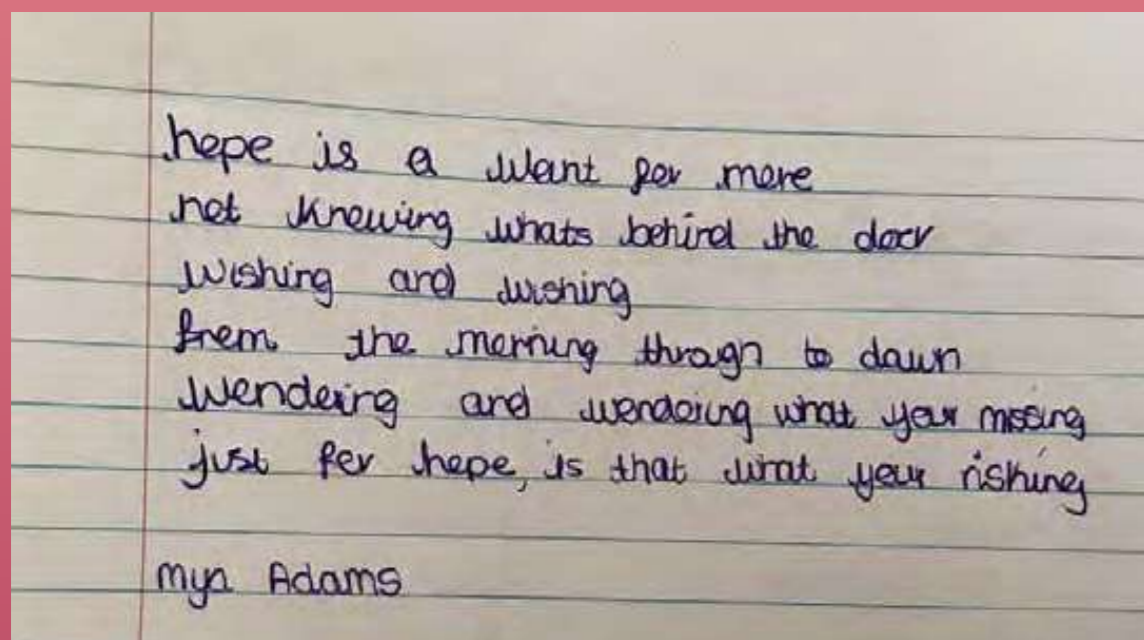 hope is a want for more
not knowing whats behind the door
wishing and wishing
from the morning through to dawn
wondering and wondering what your missing
just for hope, is that what your rishing
Mya Adams